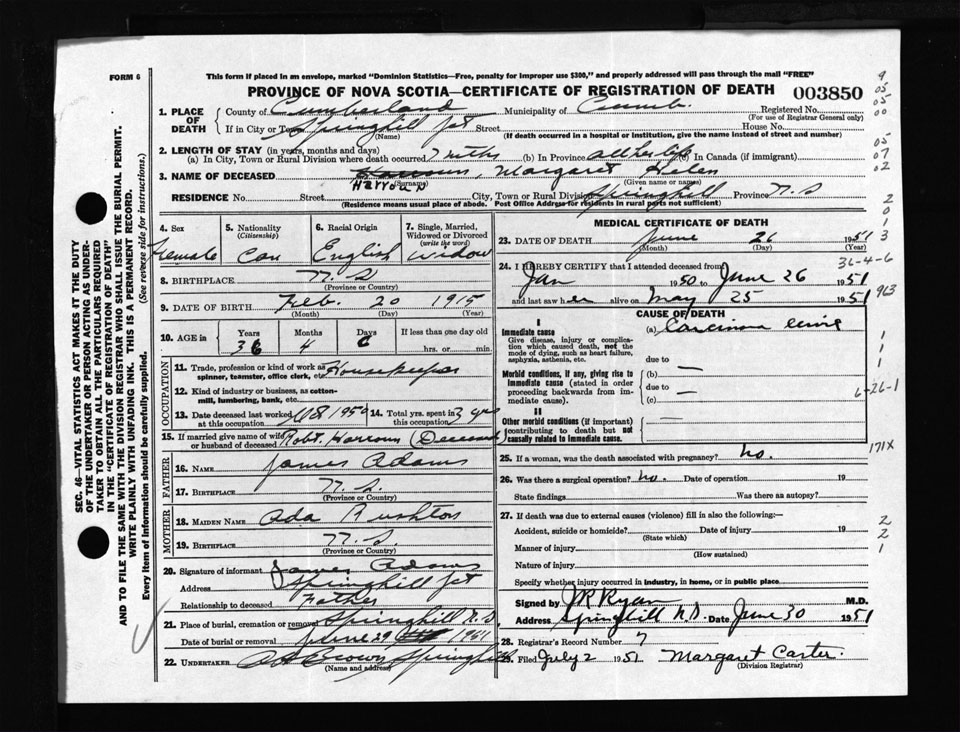 FORM 6
This form if placed in an envelope, marked "Dominion Statistics—Free, penalty for improper use $300," and properly addressed will pass through the mail "FREE"
PROVINCE OF NOVA SCOTIA—CERTIFICATE OF REGISTRATION OF DEATH 003850
1. PLACE OF DEATH
County of Cumberland Municipality of Cumb. Registered No.
(For use of Registrar General only)
If in City or Town Springhill Jct Street House No.
(Name) (If death occurred in a hospital or institution, give the name instead of street and number)
2. LENGTH OF STAY (in years, months and days)
(a) In City, Town or Rural Division where death occurred 7 mths (b) In Province all her life (c) In Canada (if immigrant)
3. NAME OF DECEASED Margaret Helen
(Surname) (Given name or names)
RESIDENCE No. Street City, Town or Rural Division Springhill Province N.S
(Residence means usual place of abode. Post Office Address for residents in rural parts not sufficient)
4. Sex
Female
5. Nationality
(Citizenship)
Can
6. Racial Origin
English
7. Single, Married, Widowed or Divorced
(write the word)
Widow
8. BIRTHPLACE N.S
(Province or Country)
9. DATE OF BIRTH Feb. 20 1915
(Month) (Day) (Year)
10. AGE in
Years Months Days If less than one day old
36 4 6 hrs. or min.
OCCUPATION
11. Trade, profession or kind of work as spinner, teamster, office clerk, etc. Housekeeper
12. Kind of industry or business, as cotton-mill, lumbering, bank, etc.
13. Date deceased last worked at this occupation 14. Total yrs. spent in this occupation 3 yrs
15. If married give name of wife or husband of deceased Robt. Harroun (Deceased)
FATHER
16. NAME James Adams
17. BIRTHPLACE N.S.
(Province or Country)
MOTHER
18. MAIDEN NAME Ada Rushton
19. BIRTHPLACE N.S.
(Province or Country)
20. Signature of informant James Adams
Address Springhill Jct
Relationship to deceased Father
21. Place of burial, cremation or removal Springhill N.S.
Date of burial or removal June 29
22. UNDERTAKER Brown Springhill
(Name and address)
MEDICAL CERTIFICATE OF DEATH
23. DATE OF DEATH June 26 1951
(Month) (Day) (Year)
24. I HEREBY CERTIFY that I attended deceased from
Jan 1950 to June 26 1951
and last saw her alive on May 25 1951
CAUSE OF DEATH
I
Immediate cause
Give disease, injury or complication which caused death, not the mode of dying, such as heart failure, asphyxia, asthenia, etc.
(a) Carcinoma
due to
Morbid conditions, if any, giving rise to immediate cause (stated in order proceeding backwards from immediate cause).
(b) —
due to —
(c)
II
Other morbid conditions (if important) contributing to death but not causally related to immediate cause.
25. If a woman, was the death associated with pregnancy? No.
26. Was there a surgical operation? No. Date of operation 19
State findings Was there an autopsy?
27. If death was due to external causes (violence) fill in also the following:—
Accident, suicide or homicide? Date of injury 19
(State which)
Manner of injury
(How sustained)
Nature of injury
Specify whether injury occurred in industry, in home, or in public place
Signed by JR Ryan M.D.
Address Springhill N.S. Date June 30 1951
28. Registrar's Record Number 7
29. Filed July 2 1951 Margaret Carter
(Division Registrar)
SEC. 46—VITAL STATISTICS ACT MAKES IT THE DUTY OF THE UNDERTAKER OR PERSON ACTING AS UNDERTAKER TO OBTAIN ALL THE PARTICULARS REQUIRED IN THE "CERTIFICATE OF REGISTRATION OF DEATH"
AND TO FILE THE SAME WITH THE DIVISION REGISTRAR WHO SHALL ISSUE THE BURIAL PERMIT.
WRITE PLAINLY WITH UNFADING INK. THIS IS A PERMANENT RECORD.
Every item of Information should be carefully supplied. (See reverse side for instructions.)
9
03
05
00
05
07
02
2
0
1
3
36-4-6
963
1
1
1
6-26-1
171X
2
2
1